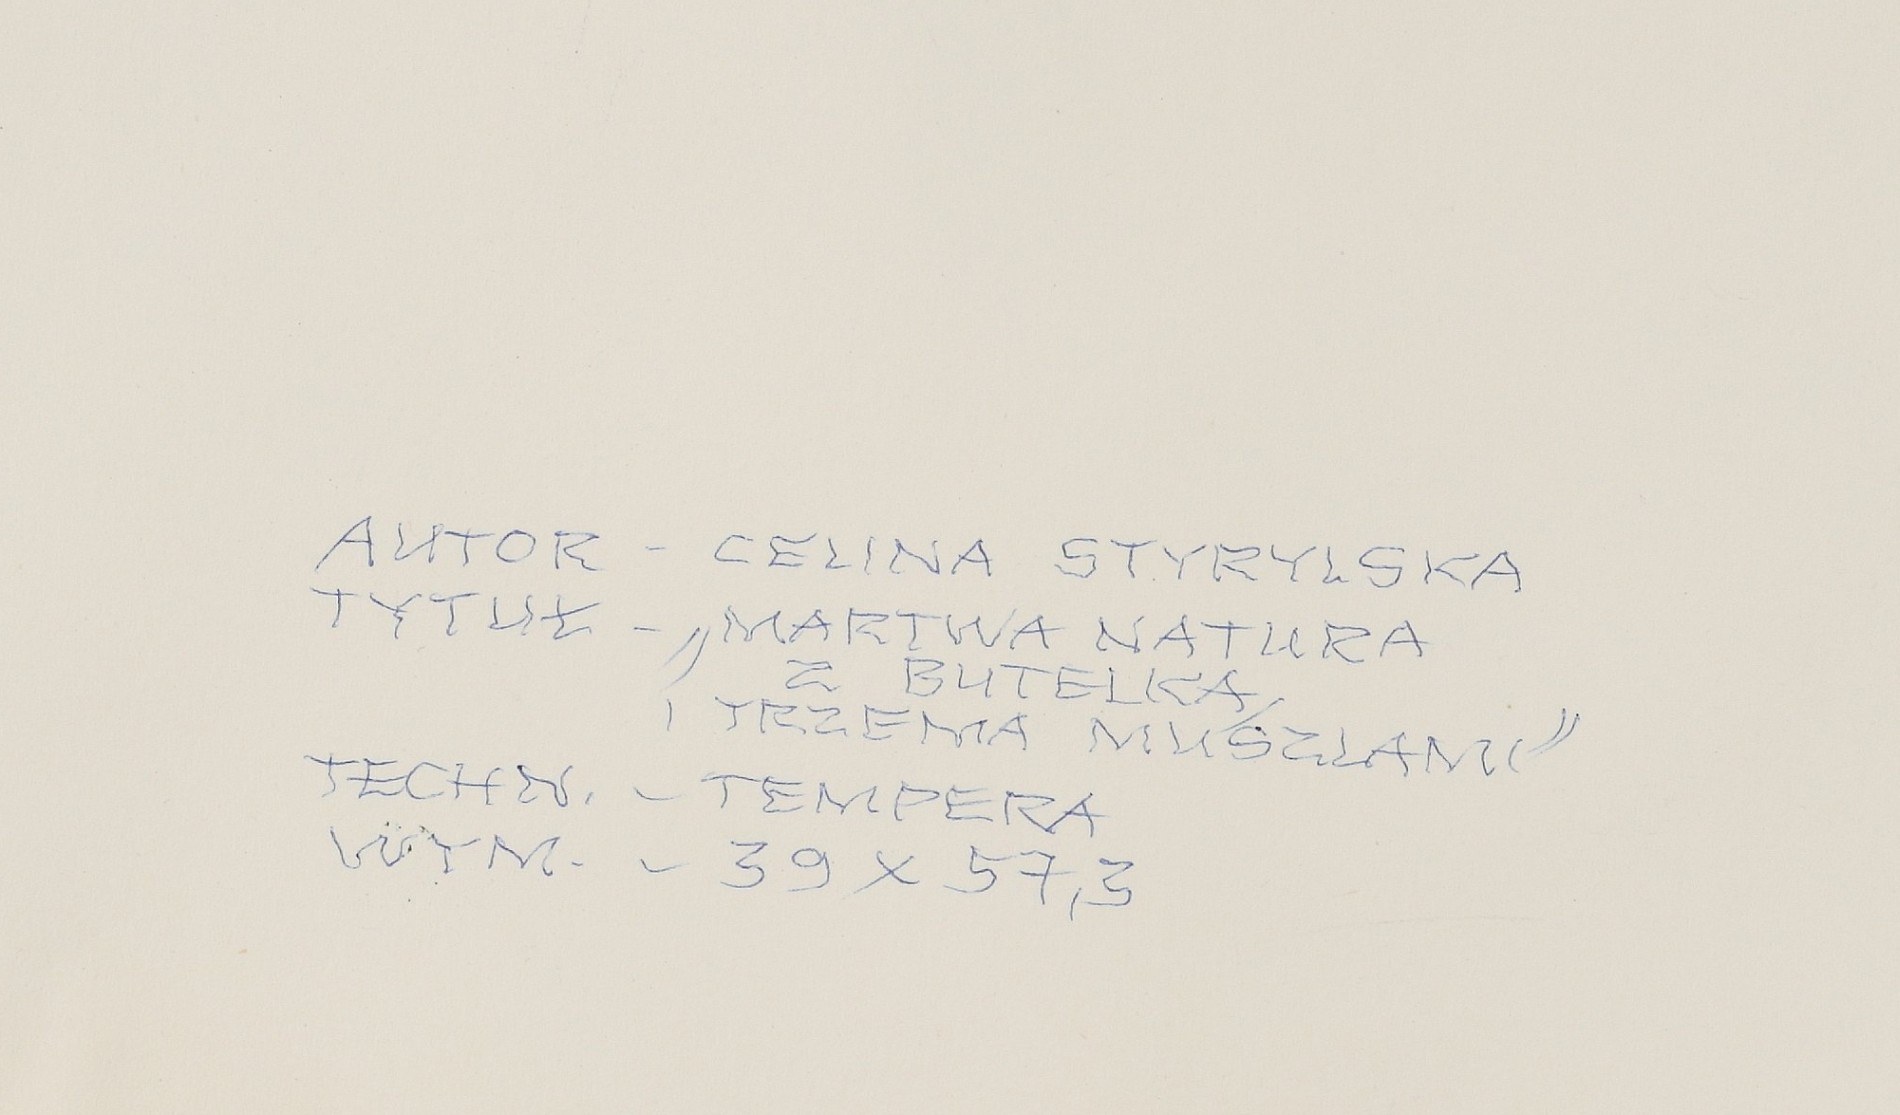 AUTOR - CELINA STYRYLSKA
TYTUŁ - „MARTWA NATURA
Z BUTELKĄ
I TRZEMA MUSZLAMI”
TECHN. - TEMPERA
WYM. - 39 X 57,3